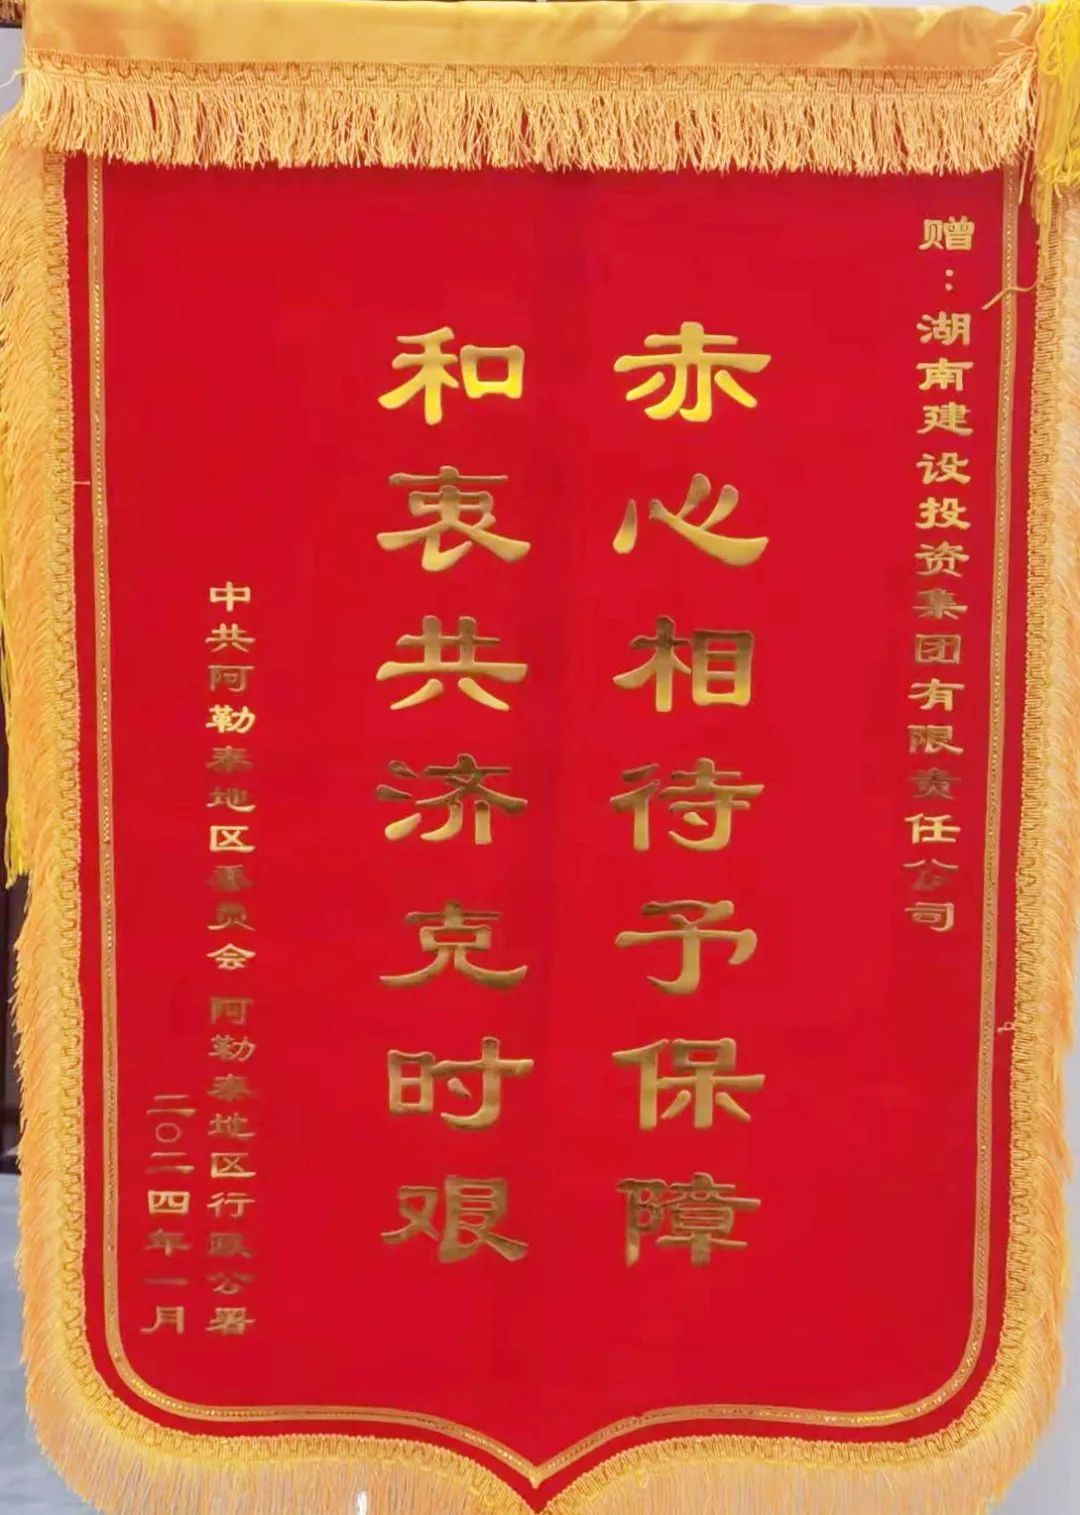 赠：湖南建设投资集团有限责任公司
赤心相待予保障
和衷共济克时艰
中共阿勒泰地区委员会 阿勒泰地区行政公署
二〇二四年一月